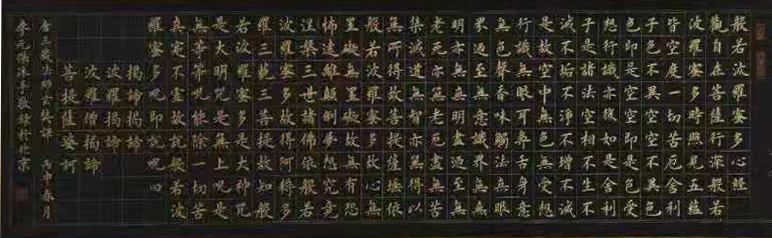 般若波羅蜜多心經
觀自在菩薩行深般若
波羅蜜多時照見五蘊
皆空度一切苦厄舍利
子色不異空空不異色
色即是空空即是色受
想行識亦復如是舍利
子是諸法空相不生不
滅不垢不淨不增不減
是故空中無色無受想
行識無眼耳鼻舌身意
無色聲香味觸法無眼
界乃至無意識界無無
明亦無無明盡乃至無
老死亦無老死盡無苦
集滅道無智亦無得以
無所得故菩提薩埵依
般若波羅蜜多故心無
罣礙無罣礙故無有恐
怖遠離顛倒夢想究竟
涅槃三世諸佛依般若
波羅蜜多故得阿耨多
羅三藐三菩提故知般
若波羅蜜多是大神呪
是大明呪是無上呪是
無等等呪能除一切苦
真實不虛故說般若波
羅蜜多呪即說呪曰
揭諦揭諦
波羅揭諦
波羅僧揭諦
菩提薩婆訶
唐三藏法師玄奘譯 丙申春月
李元沐手敬錄於北京